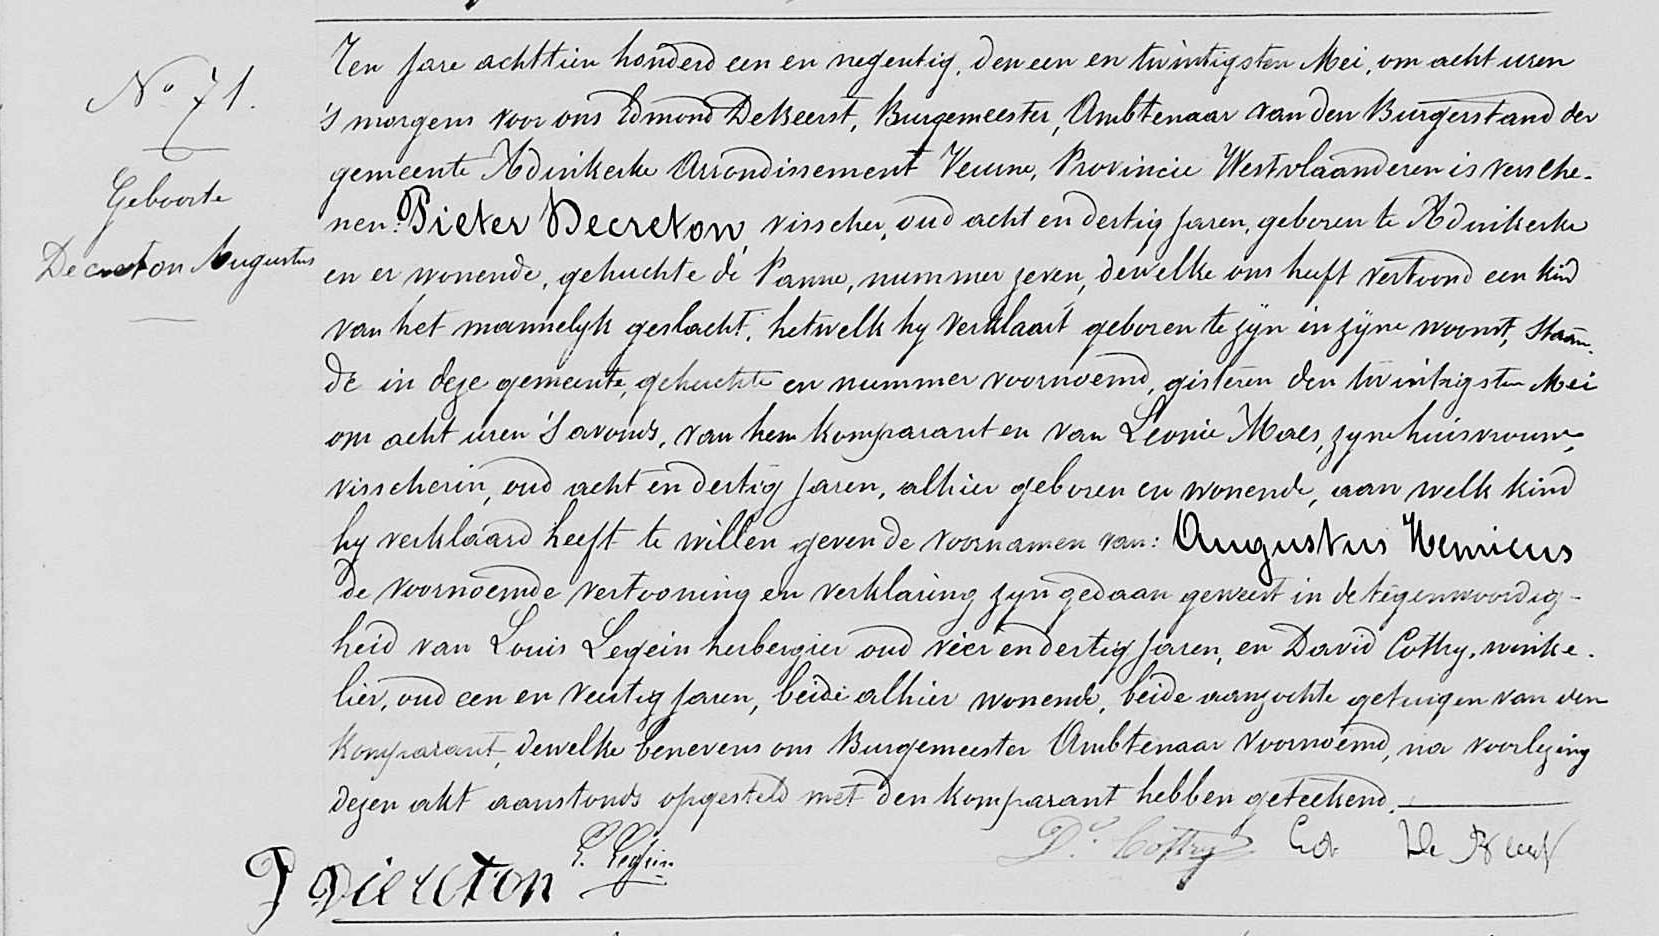 Ten jare achttien honderd een en negentig, den een en twintigsten Mei, om acht uren
's morgens voor ons Edmond DeKeerst, Burgemeester, Ambtenaar van den Burgerstand der
gemeente Adinkerke Arrondissement Veurne, Provincie Westvlaanderen is versche-
nen: Pieter Decreton, visscher, oud acht en dertig jaren, geboren te Adinkerke
en er wonende, gehuchte de Panne, nummer zeven, dewelke ons heeft vertoond een kind
van het mannelyk geslacht, hetwelk hy verklaart geboren te zyn in zyne woonst, staan-
de in deze gemeente, gehuchte en nummer voornoemd, gisteren den twintigsten Mei
om acht uren 's avonds, van hem komparant en van Leonie Maes, zyne huisvrouw,
visscherin, oud acht en dertig jaren, alhier geboren en wonende, aan welk kind
hy verklaard heeft te willen geven de voornamen van: Augustus Henricus
De voornoemde vertooning en verklaring zyn gedaan geweest in de tegenwoordig-
heid van Louis Legein herbergier oud vier en dertig jaren, en David Cottry, winke-
lier, oud een en veertig jaren, beide alhier wonende, beide aanzochte getuigen van den
komparant, dewelke benevens ons Burgemeester Ambtenaar voornoemd, na voorlezing
dezen akt aanstonds opgesteld met den komparant hebben geteekend.
No 71.
Geboorte
Decreton Augustus
P Decreton L. Legein Dd. Cottry Ed. De Keerst